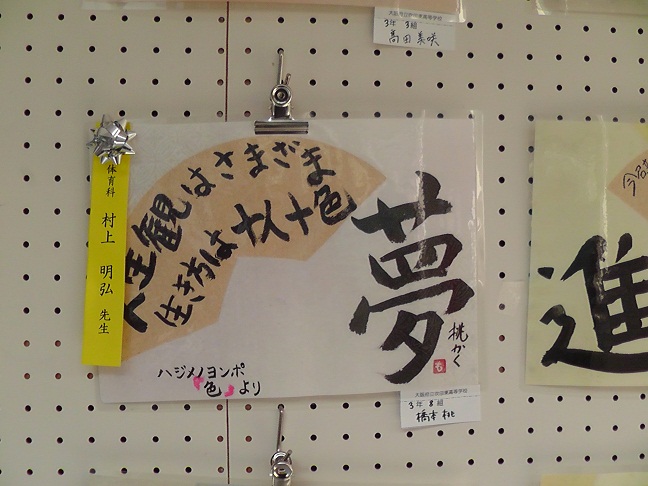 3年 3組
高田 美咲
体育科
村上 明弘 先生
人生観はさまざま
生き方は十人十色
夢
桃かく
ハジメノヨンポ
『色』より
3年 8組
橋本 桃
進